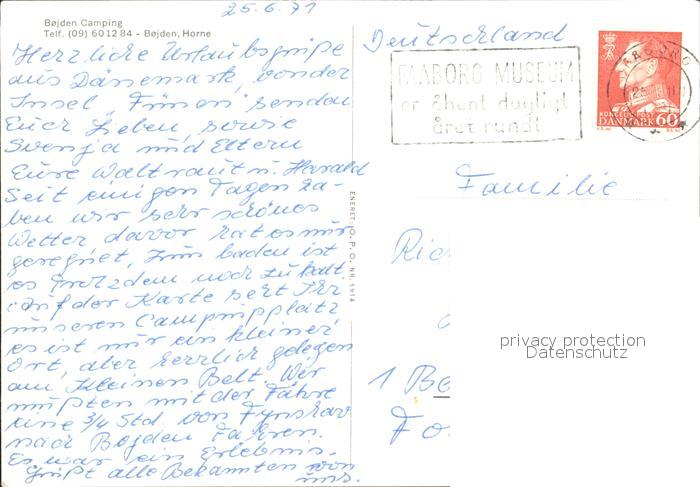 25.6.71
Bøjden Camping
Telf. (09) 60 12 84 - Bøjden, Horne
Herzliche Urlaubsgrüße
aus Dänemark, von der
Insel „Fünen" senden
Euch Lieben, sowie
Svenja und Eltern
Eure Waltraut u. Harald
Seit einigen Tagen ha-
ben wir sehr schönes
Wetter davor hat es nur
geregnet, zum baden ist
es trotzdem noch zu kalt.
Auf der Karte seht Ihr
unseren Campingplatz
es ist nur ein kleiner
Ort, aber herrlich gelegen
am kleinen Belt. Wir
mußten mit der Fähre
eine 3/4 Std. von Fynshav
nach Bøjden fahren.
Es war ein Erlebnis.
Grüßt alle Bekannten von
uns.
ENERET: O.P.O. NR. 6914
Deutschland
FAABORG MUSEUM
er åbent dagligt
året rundt
KONGELIG POST
DANMARK 60
Familie
Ric
1 Be
Fo
privacy protection
Datenschutz